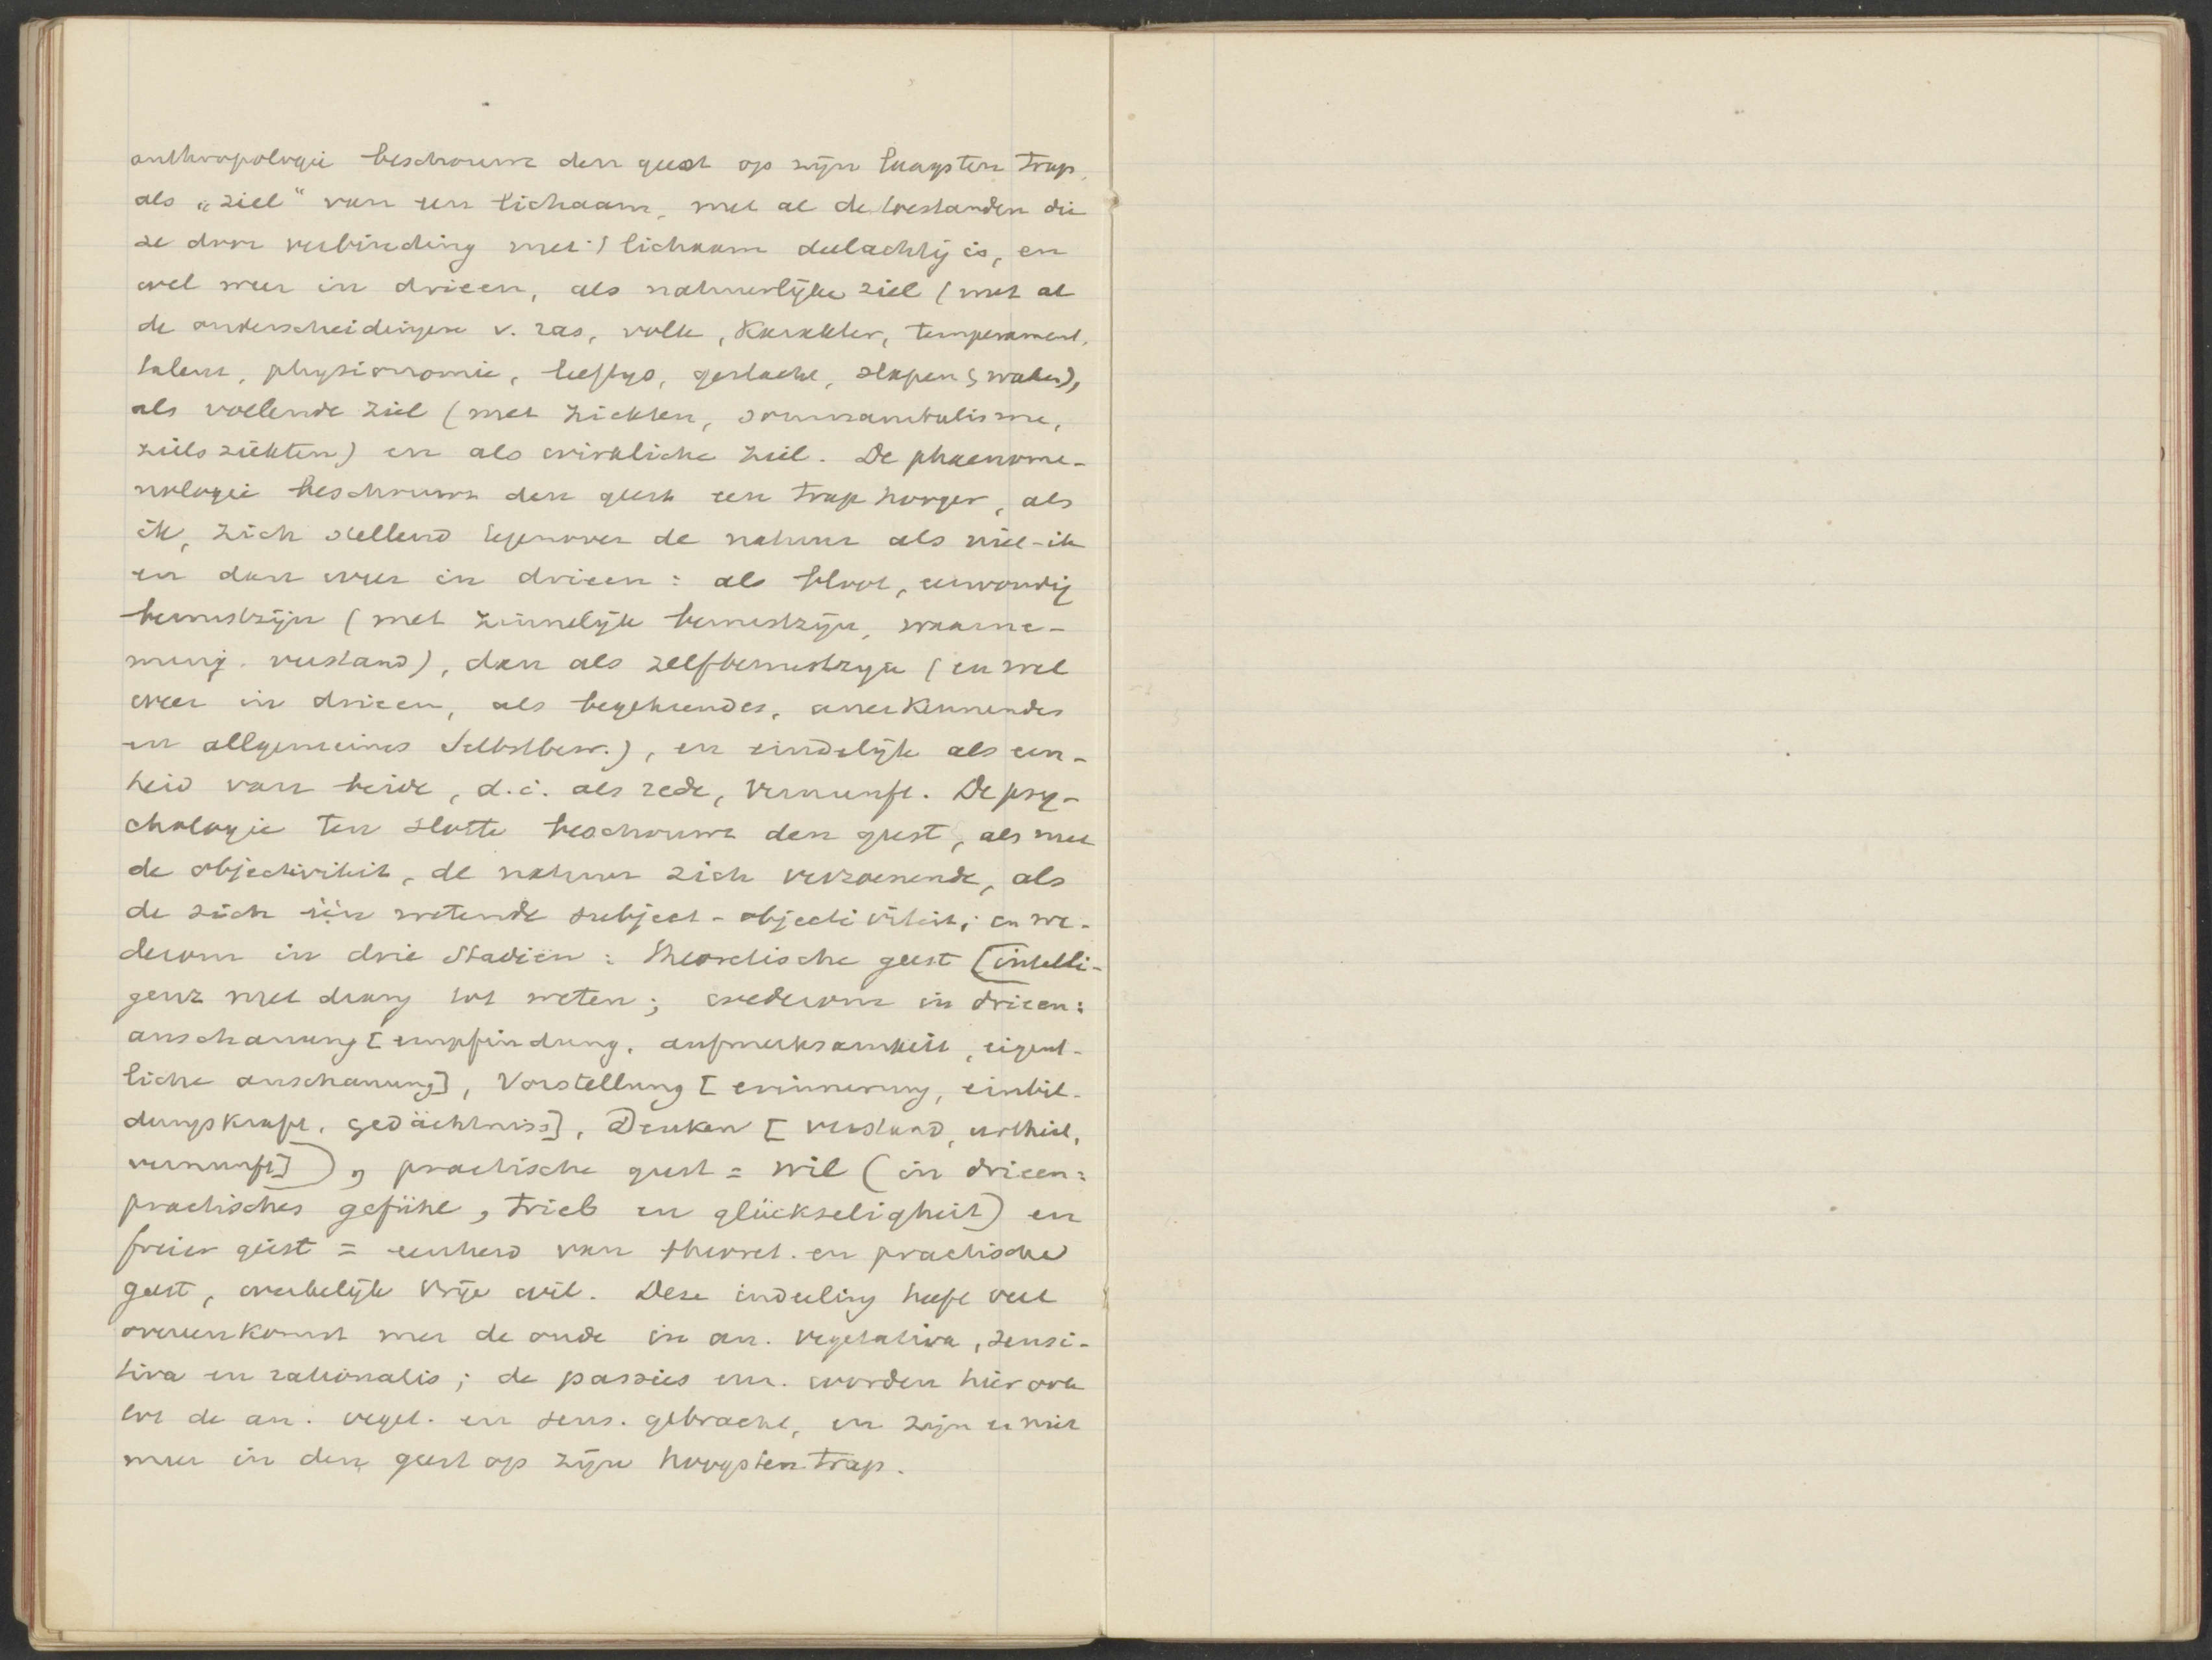 anthropologie beschouwt den geest op zijn laagsten trap,
als „ziel" van een lichaam, met al de toestanden die
ze door verbinding met 't lichaam deelachtig is, en
wel weer in drieen, als natuurlijke ziel (met al
de onderscheidingen v. ras, volk, karakter, temperament,
talent, physionomie, leeftyd, geslacht, slapen & waken),
als voelende ziel (met ziekten, somnambulisme,
zielsziekten) en als wirkliche ziel. De phaenome-
nologie beschouwt den geest een trap hooger, als
ik, zich stellend tegenover de natuur als niet-ik
en dan weer in drieen: als bloot, eenvoudig
bewustzijn (met zinnelijk bewustzijn, waarne-
ming. verstand), dan als zelfbewustzyn (en wel
weer in drieen, als begehrendes, anerkennendes
en allgemeines Selbstbew.), en eindelijk als een-
heid van beide, d.i. als rede, Vernunft. De psy-
chologie ten slotte beschouwt den geest, als met
de objectiviteit, de natuur zich verzoenende, als
de zich één wetende subject-objectiviteit; en we-
derom in drie Stadiën: theoretische geest (intelli-
genz met drang tot weten; wederom in drieen:
anschauung [empfindung, aufmerksamkeit, eigent-
liche anschauung], Vorstellung [erinnerung, einbil-
dungskraft, gedächtniss], Denken [verstand, urtheil,
vernunft]), practische geest = wil (in drieen:
practisches gefühl, trieb en glückseligheit) en
freier geist = eenheid van theoret. en practische
geest, werkelijk vrije wil. Deze indeeling heeft veel
overeenkomst met de oude in an. vegetativa, sensi-
tiva en rationalis; de passies enz. worden hier ook
tot de an. veget. en sens. gebracht, en zijn er niet
meer in den geest op zijn hoogsten trap.